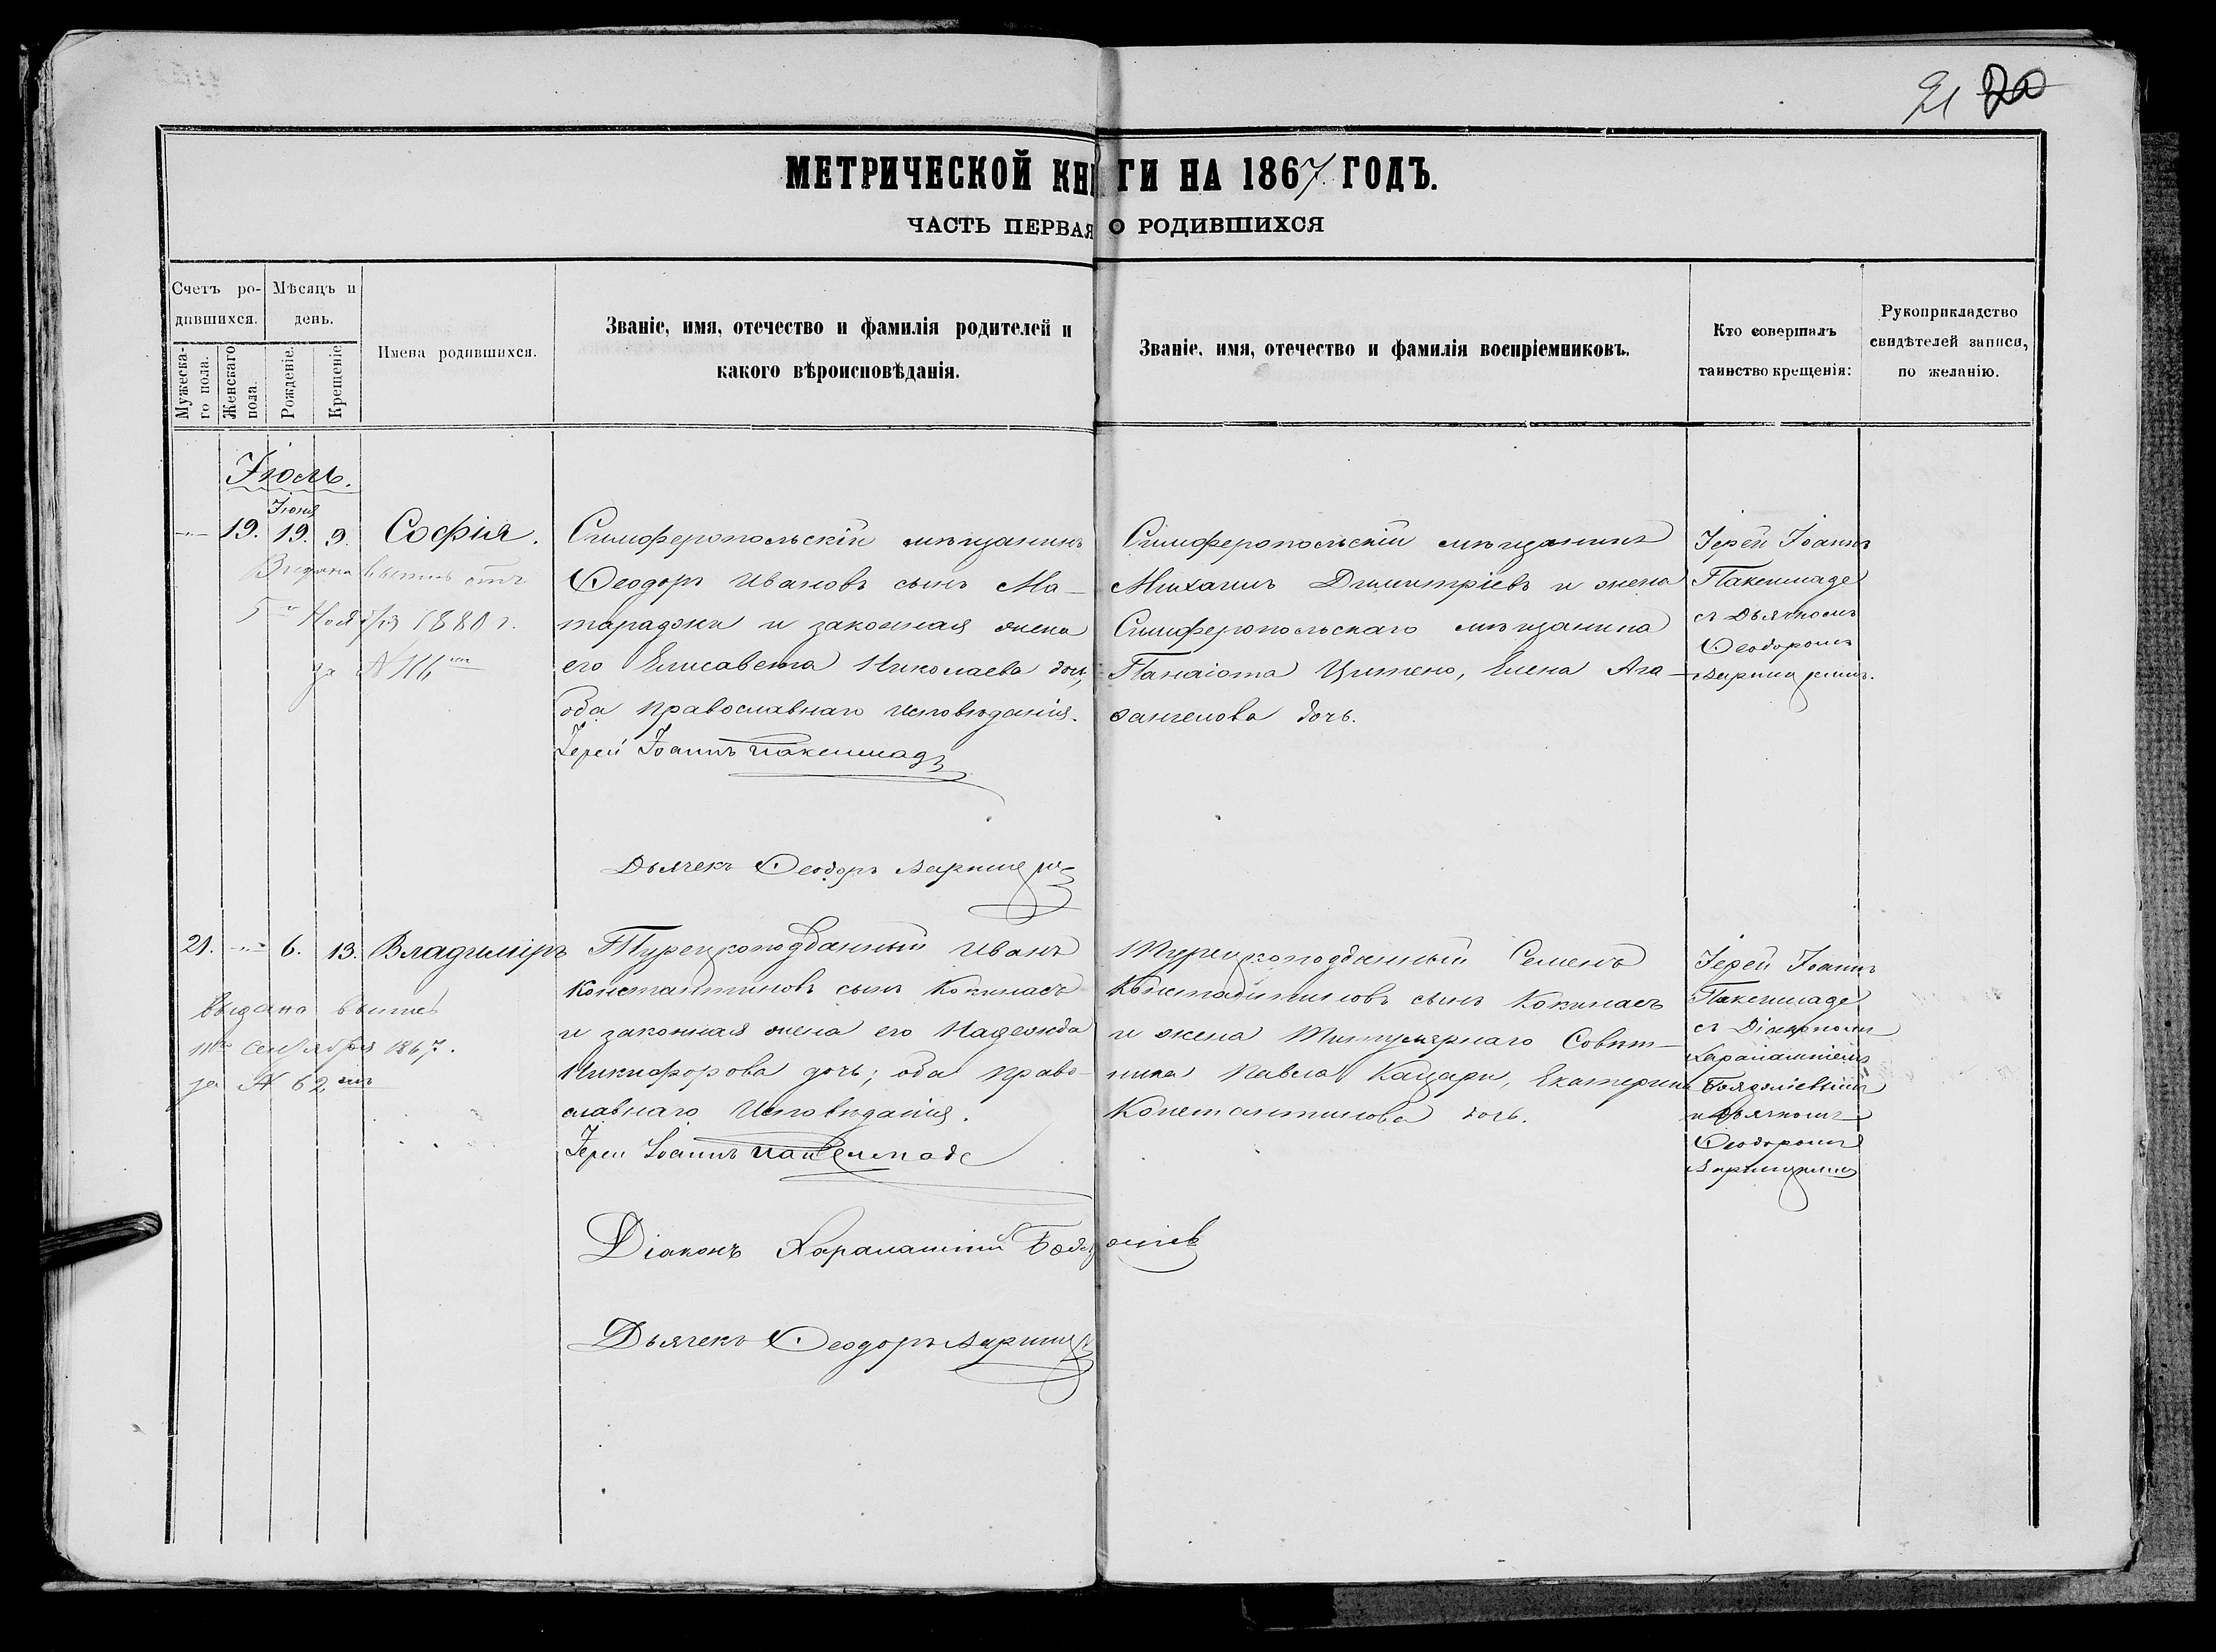 21 20
МЕТРИЧЕСКОЙ КНИГИ НА 1867 ГОДЪ.
ЧАСТЬ ПЕРВАЯ О РОДИВШИХСЯ
Счетъ ро-
дившихся.
Мужеска-
го пола.
Женскаго
пола.
Мѣсяцъ и
день.
Рожденіе.
Крещеніе
Имена родившихся.
Званіе, имя, отечество и фамилія родителей и
какого вѣроисповѣданія.
Званіе, имя, отечество и фамилія воспріемниковъ.
Кто совершалъ
таинство крещенія:
Рукоприкладство
свидѣтелей записи,
по желанію.
Іюль.
Іюня
— 19. 19. 9. Софія.
Выдана выпись отъ
5го Ноября 1880 г.
за №
Симферопольскій мѣщанинъ
Ѳеодоръ Ивановъ сынъ Ма-
тараджи и законная жена
его Елисавета Николаева дочь,
оба православнаго исповѣданія.
Іерей Іоаннъ Пакеимаде
Дьячекъ Ѳеодоръ
Симферопольскій мѣщанинъ
Михаилъ Димитріевъ и жена
Симферопольскаго мѣщанина
Панаіота Цитено, Елена Ага-
ѳангелова дочь.
Іерей Іоаннъ
Пакеимаде
съ Дьячкомъ
Ѳеодоромъ
21. — 6. 13. Владиміръ
Выдано выпись
сентября 1867.
за № 62
Турецкоподданный Иванъ
Константиновъ сынъ Кокинасъ
и законная жена его Надежда
Никифорова дочь; оба право-
славнаго Исповѣданія.
Іерей Іоаннъ Пакеимаде
Діаконъ Харалампій
Дьячекъ Ѳеодоръ
Турецкоподданный Семенъ
Константиновъ сынъ Кокинасъ
и жена Титулярнаго Совѣт-
ника Павла Кацари, Екатерина
Константинова дочь.
Іерей Іоаннъ
Пакеимаде
съ Діакономъ
Харалампіемъ
и Дьячкомъ
Ѳеодоромъ